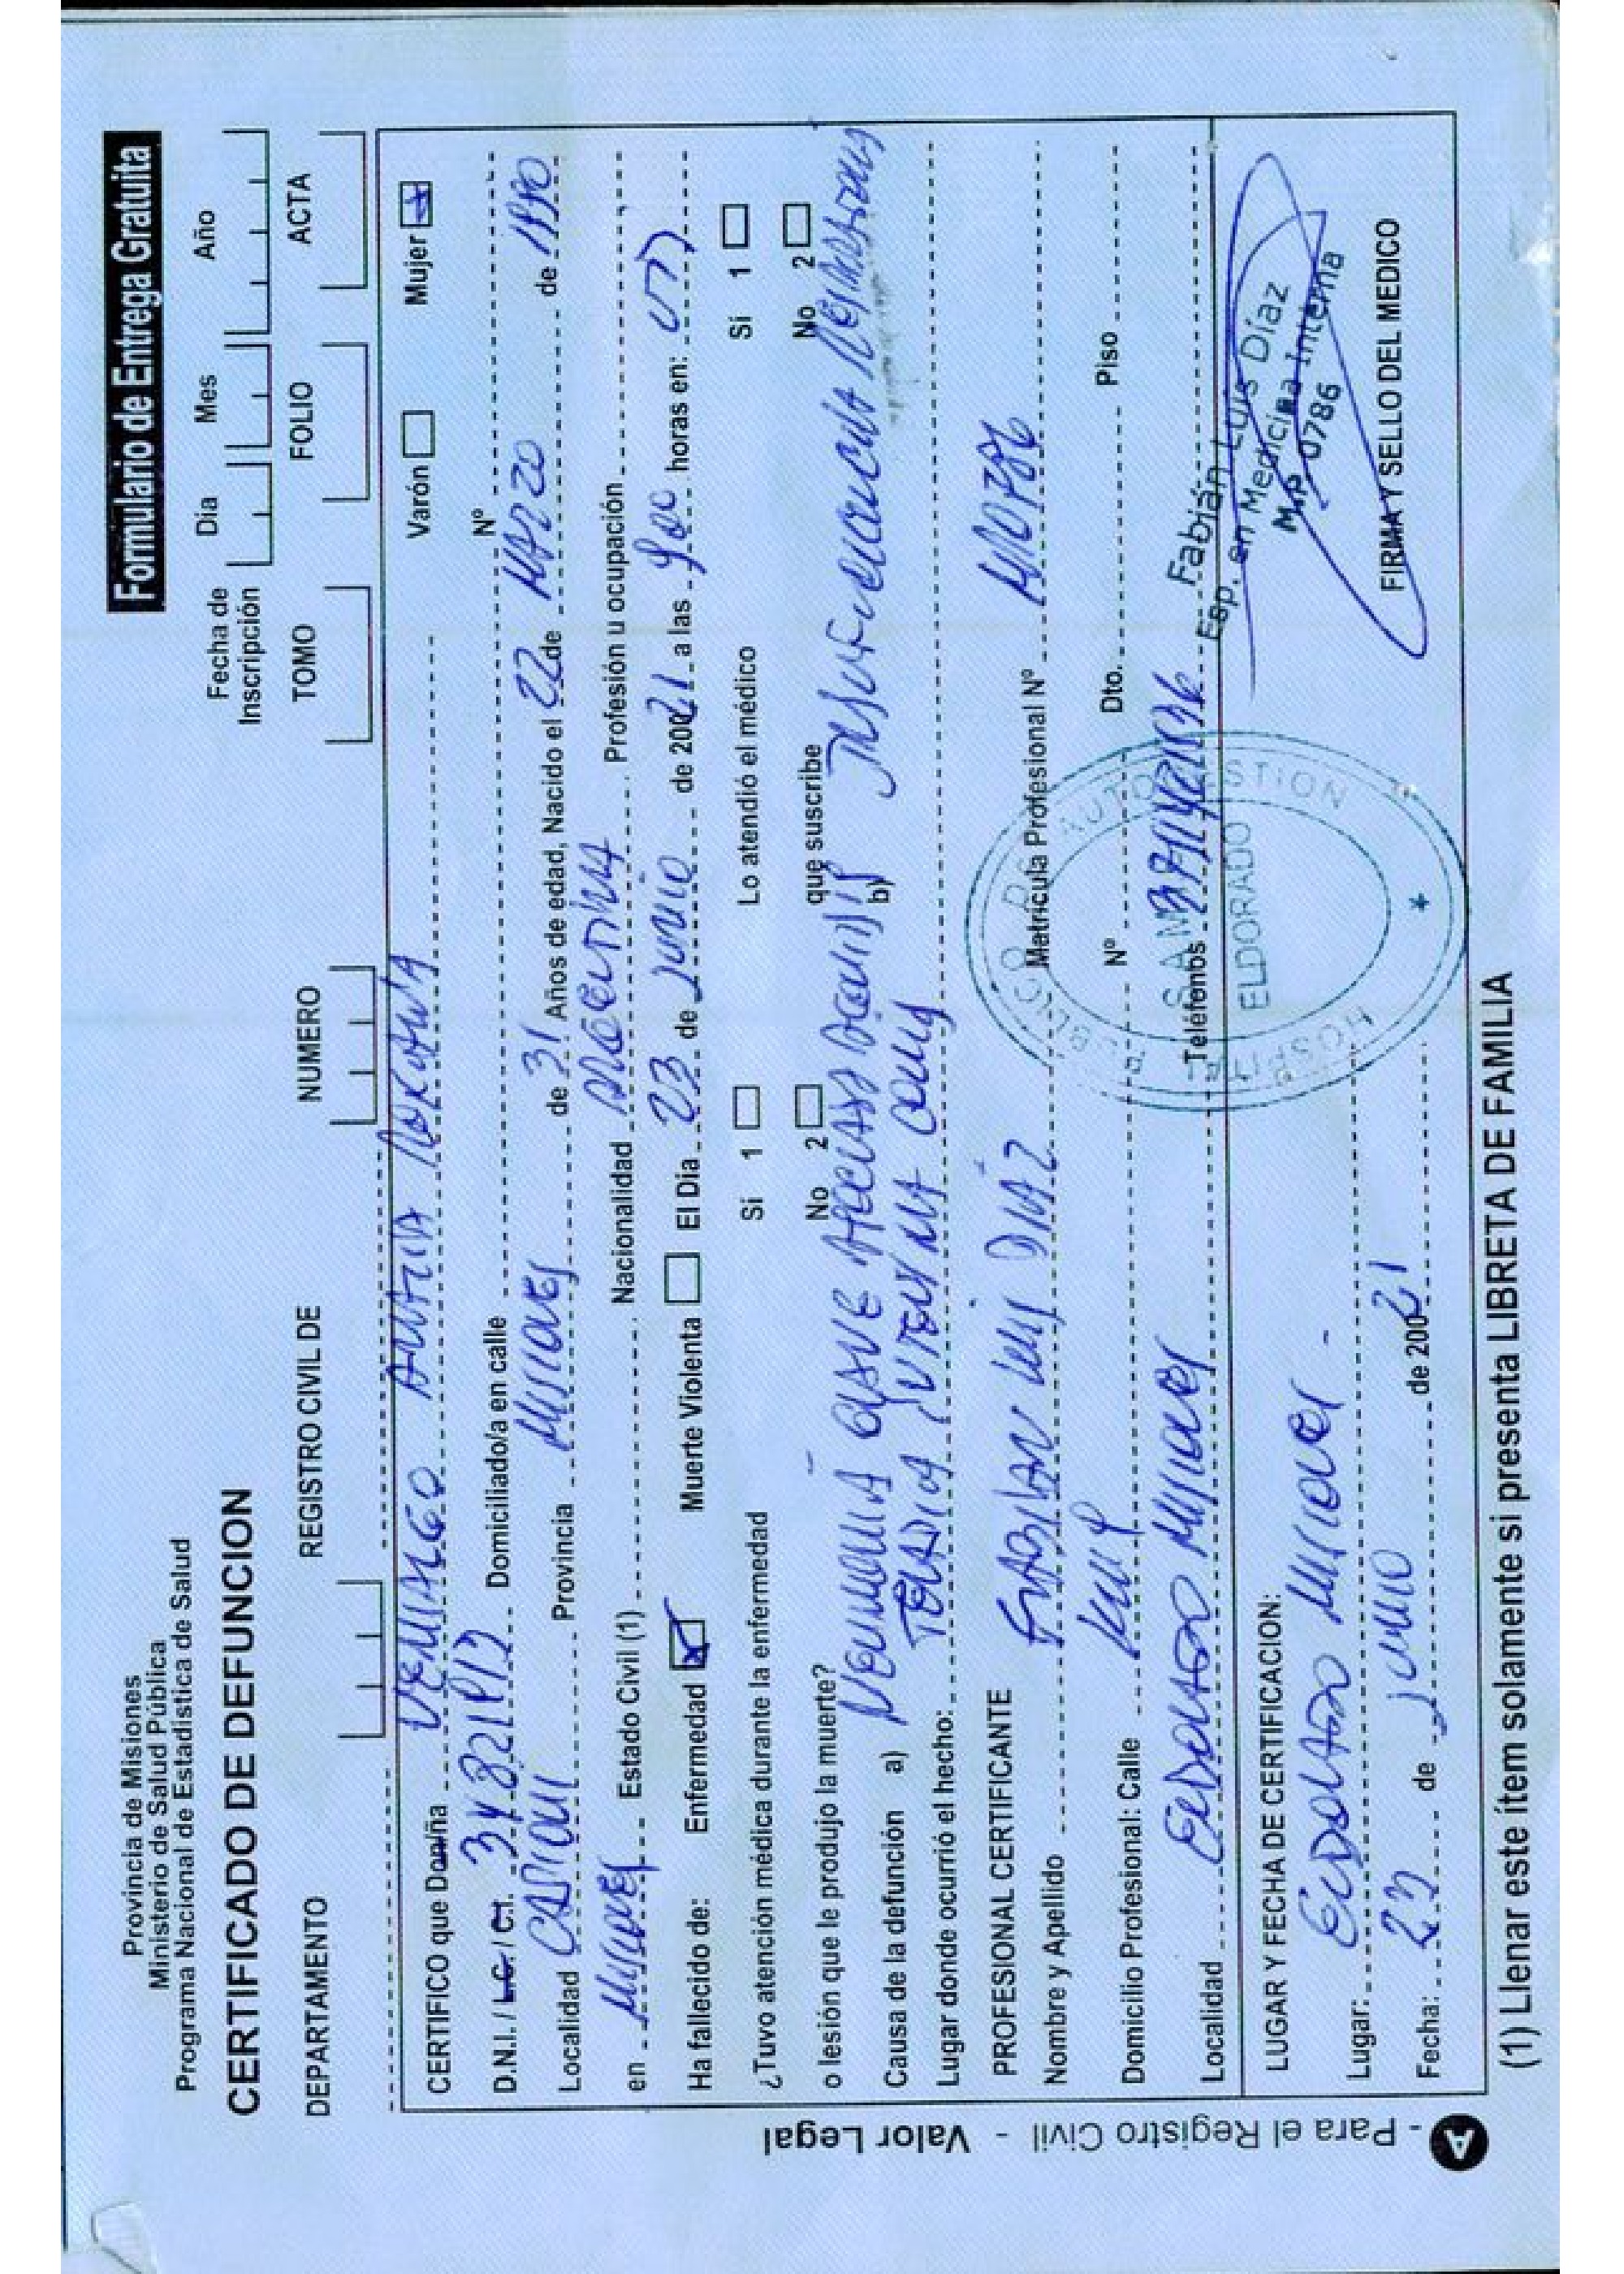 Provincia de Misiones
Ministerio de Salud Pública
Programa Nacional de Estadística de Salud
Formulario de Entrega Gratuita
CERTIFICADO DE DEFUNCION
Fecha de Inscripción Dia Mes Año
DEPARTAMENTO REGISTRO CIVIL DE NUMERO TOMO FOLIO ACTA
CERTIFICO que Don/ña Varón Mujer
D.N.I. / L.C. / C.I. Domiciliado/a en calle Nº
Localidad Provincia MISIONES de 31 Años de edad, Nacido el 22 de MARZO de 1990
en MISIONES Estado Civil (1) Nacionalidad ARGENTINA Profesión u ocupación
Ha fallecido de: Enfermedad Muerte Violenta El Dia 23 de JUNIO de 20021 a las horas en: UTI
¿Tuvo atención médica durante la enfermedad Si 1 Lo atendió el médico Si 1
o lesión que le produjo la muerte? No 2 que suscribe No 2
Causa de la defunción a) NEUMONIA GRAVE b) INSUFICIENCIA RESPIRATORIA
Lugar donde ocurrió el hecho:
PROFESIONAL CERTIFICANTE
Nombre y Apellido FABIAN LUIS DIAZ Matrícula Profesional Nº
Domicilio Profesional: Calle Nº Dto. Piso
Localidad ELDORADO MISIONES Teléfonos
HOSPITAL PUBLICO DE AUTOGESTION
SAMIC
ELDORADO
Fabián Luis Díaz
Esp. en Medicina Interna
M.P. 0786
LUGAR Y FECHA DE CERTIFICACION:
Lugar: ELDORADO MISIONES
Fecha: 23 de JUNIO de 20021
FIRMA Y SELLO DEL MEDICO
(1) Llenar este ítem solamente si presenta LIBRETA DE FAMILIA
A - Para el Registro Civil - Valor Legal